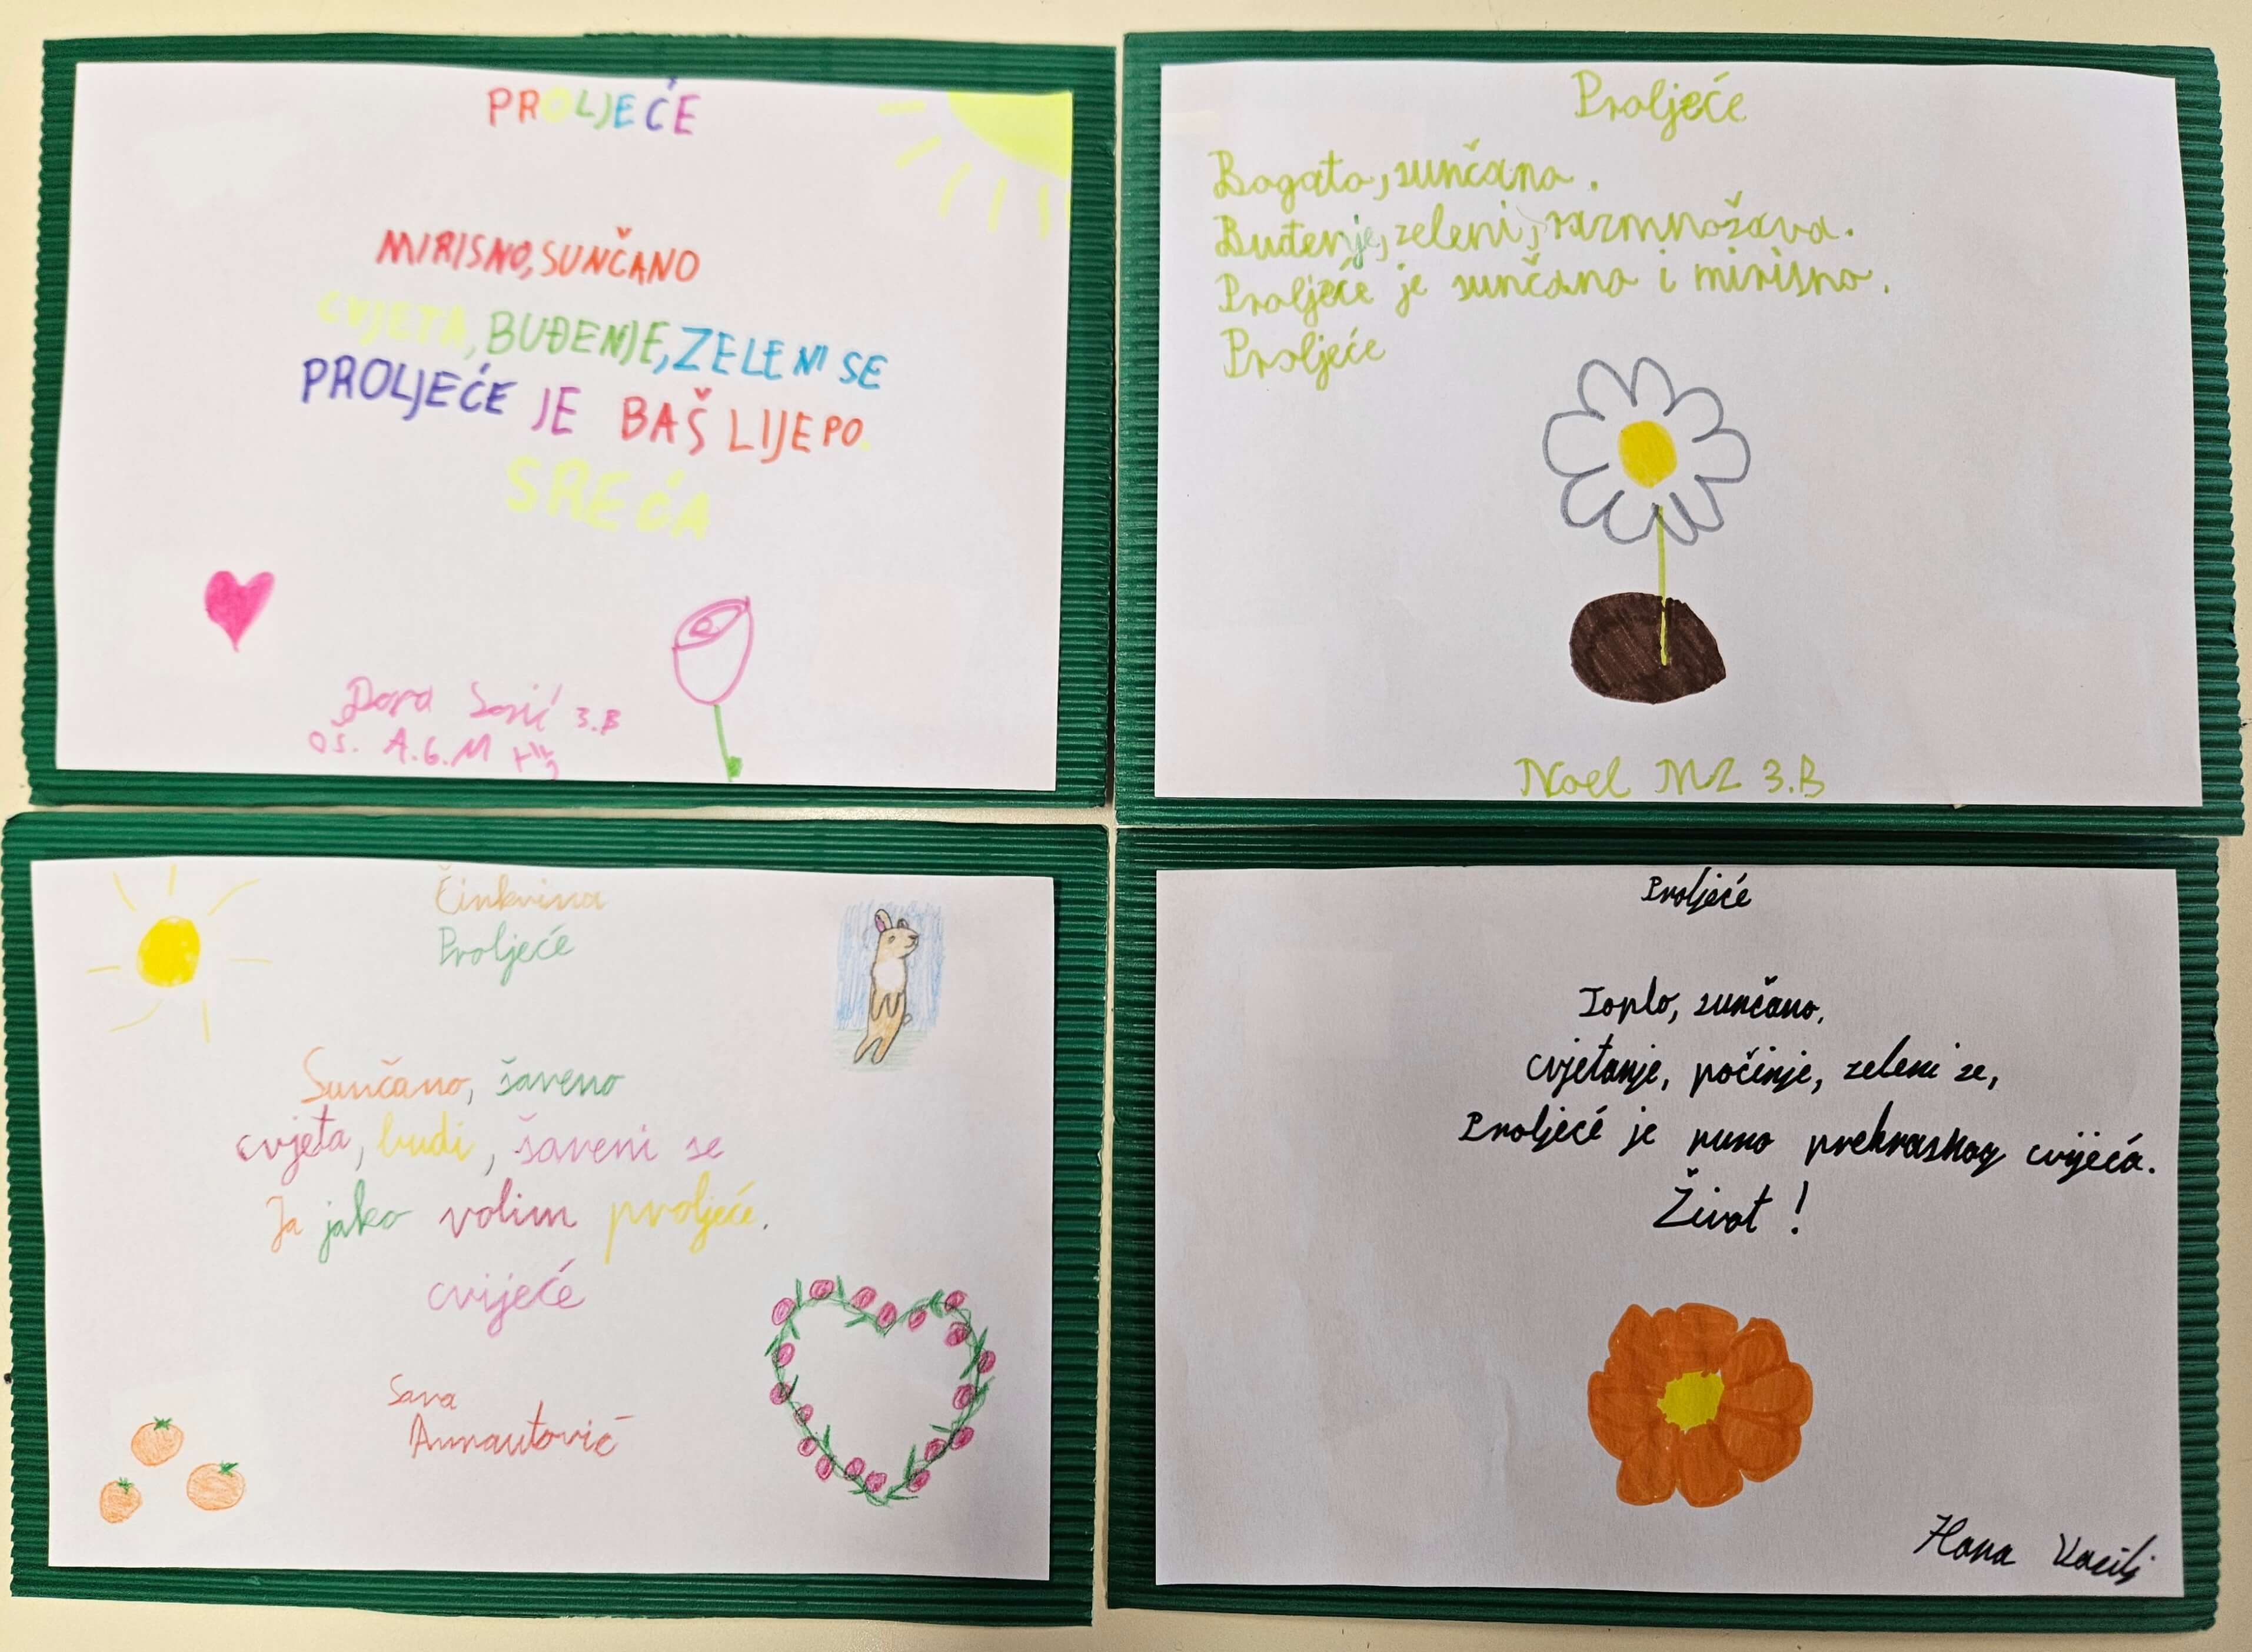 PROLJEĆE
MIRISNO, SUNČANO
CVJETA, BUĐENJE, ZELENI SE
PROLJEĆE JE BAŠ LIJEPO.
SREĆA
Dora 3.B
OŠ. A.G.M
Proljeće
Bogato, sunčano.
Buđenje, zeleni, razmnožava.
Proljeće je sunčano i mirisno.
Proljeće
Noel MZ 3.B
Činkvina
Proljeće
Sunčano, šareno
cvjeta, budi, šareni se
Ja jako volim proljeće.
cvijeće
Sara
Arnautović
Proljeće
Toplo, sunčano,
cvjetanje, počinje, zeleni se,
Proljeće je puno prekrasnog cvijeća.
Život!
Hana